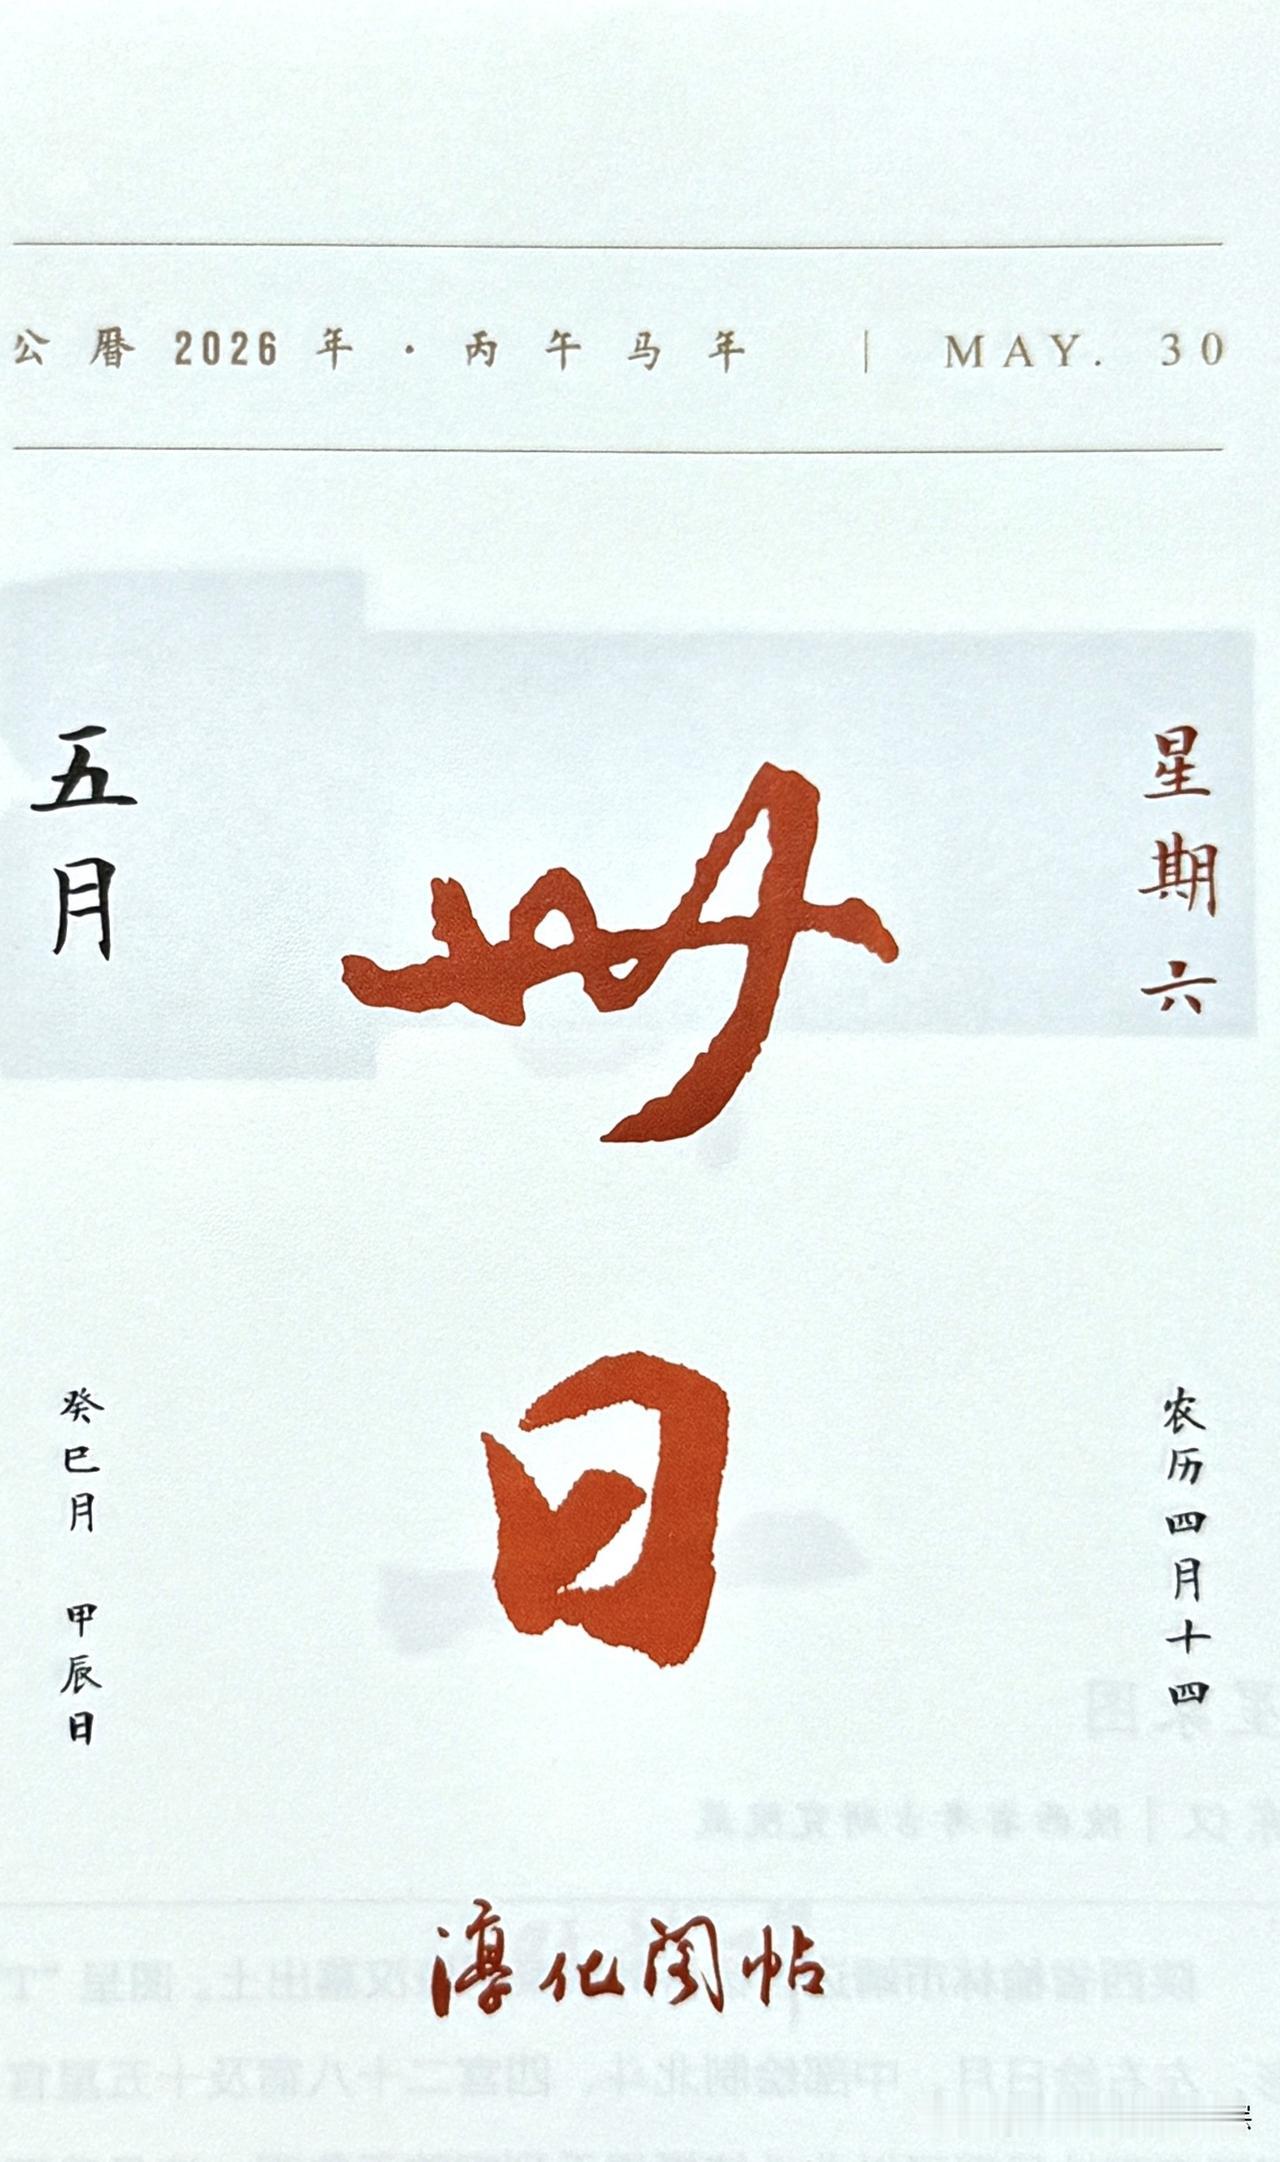 公曆 2026 年·丙午马年 | MAY. 30
五月
卅日
星期六
癸巳月 甲辰日
农历四月十四
淳化阁帖